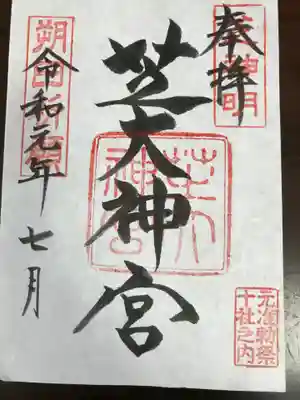 奉拝
芝大神宮
芝大
神宮
令和元年七月
元准勅祭
十社之内